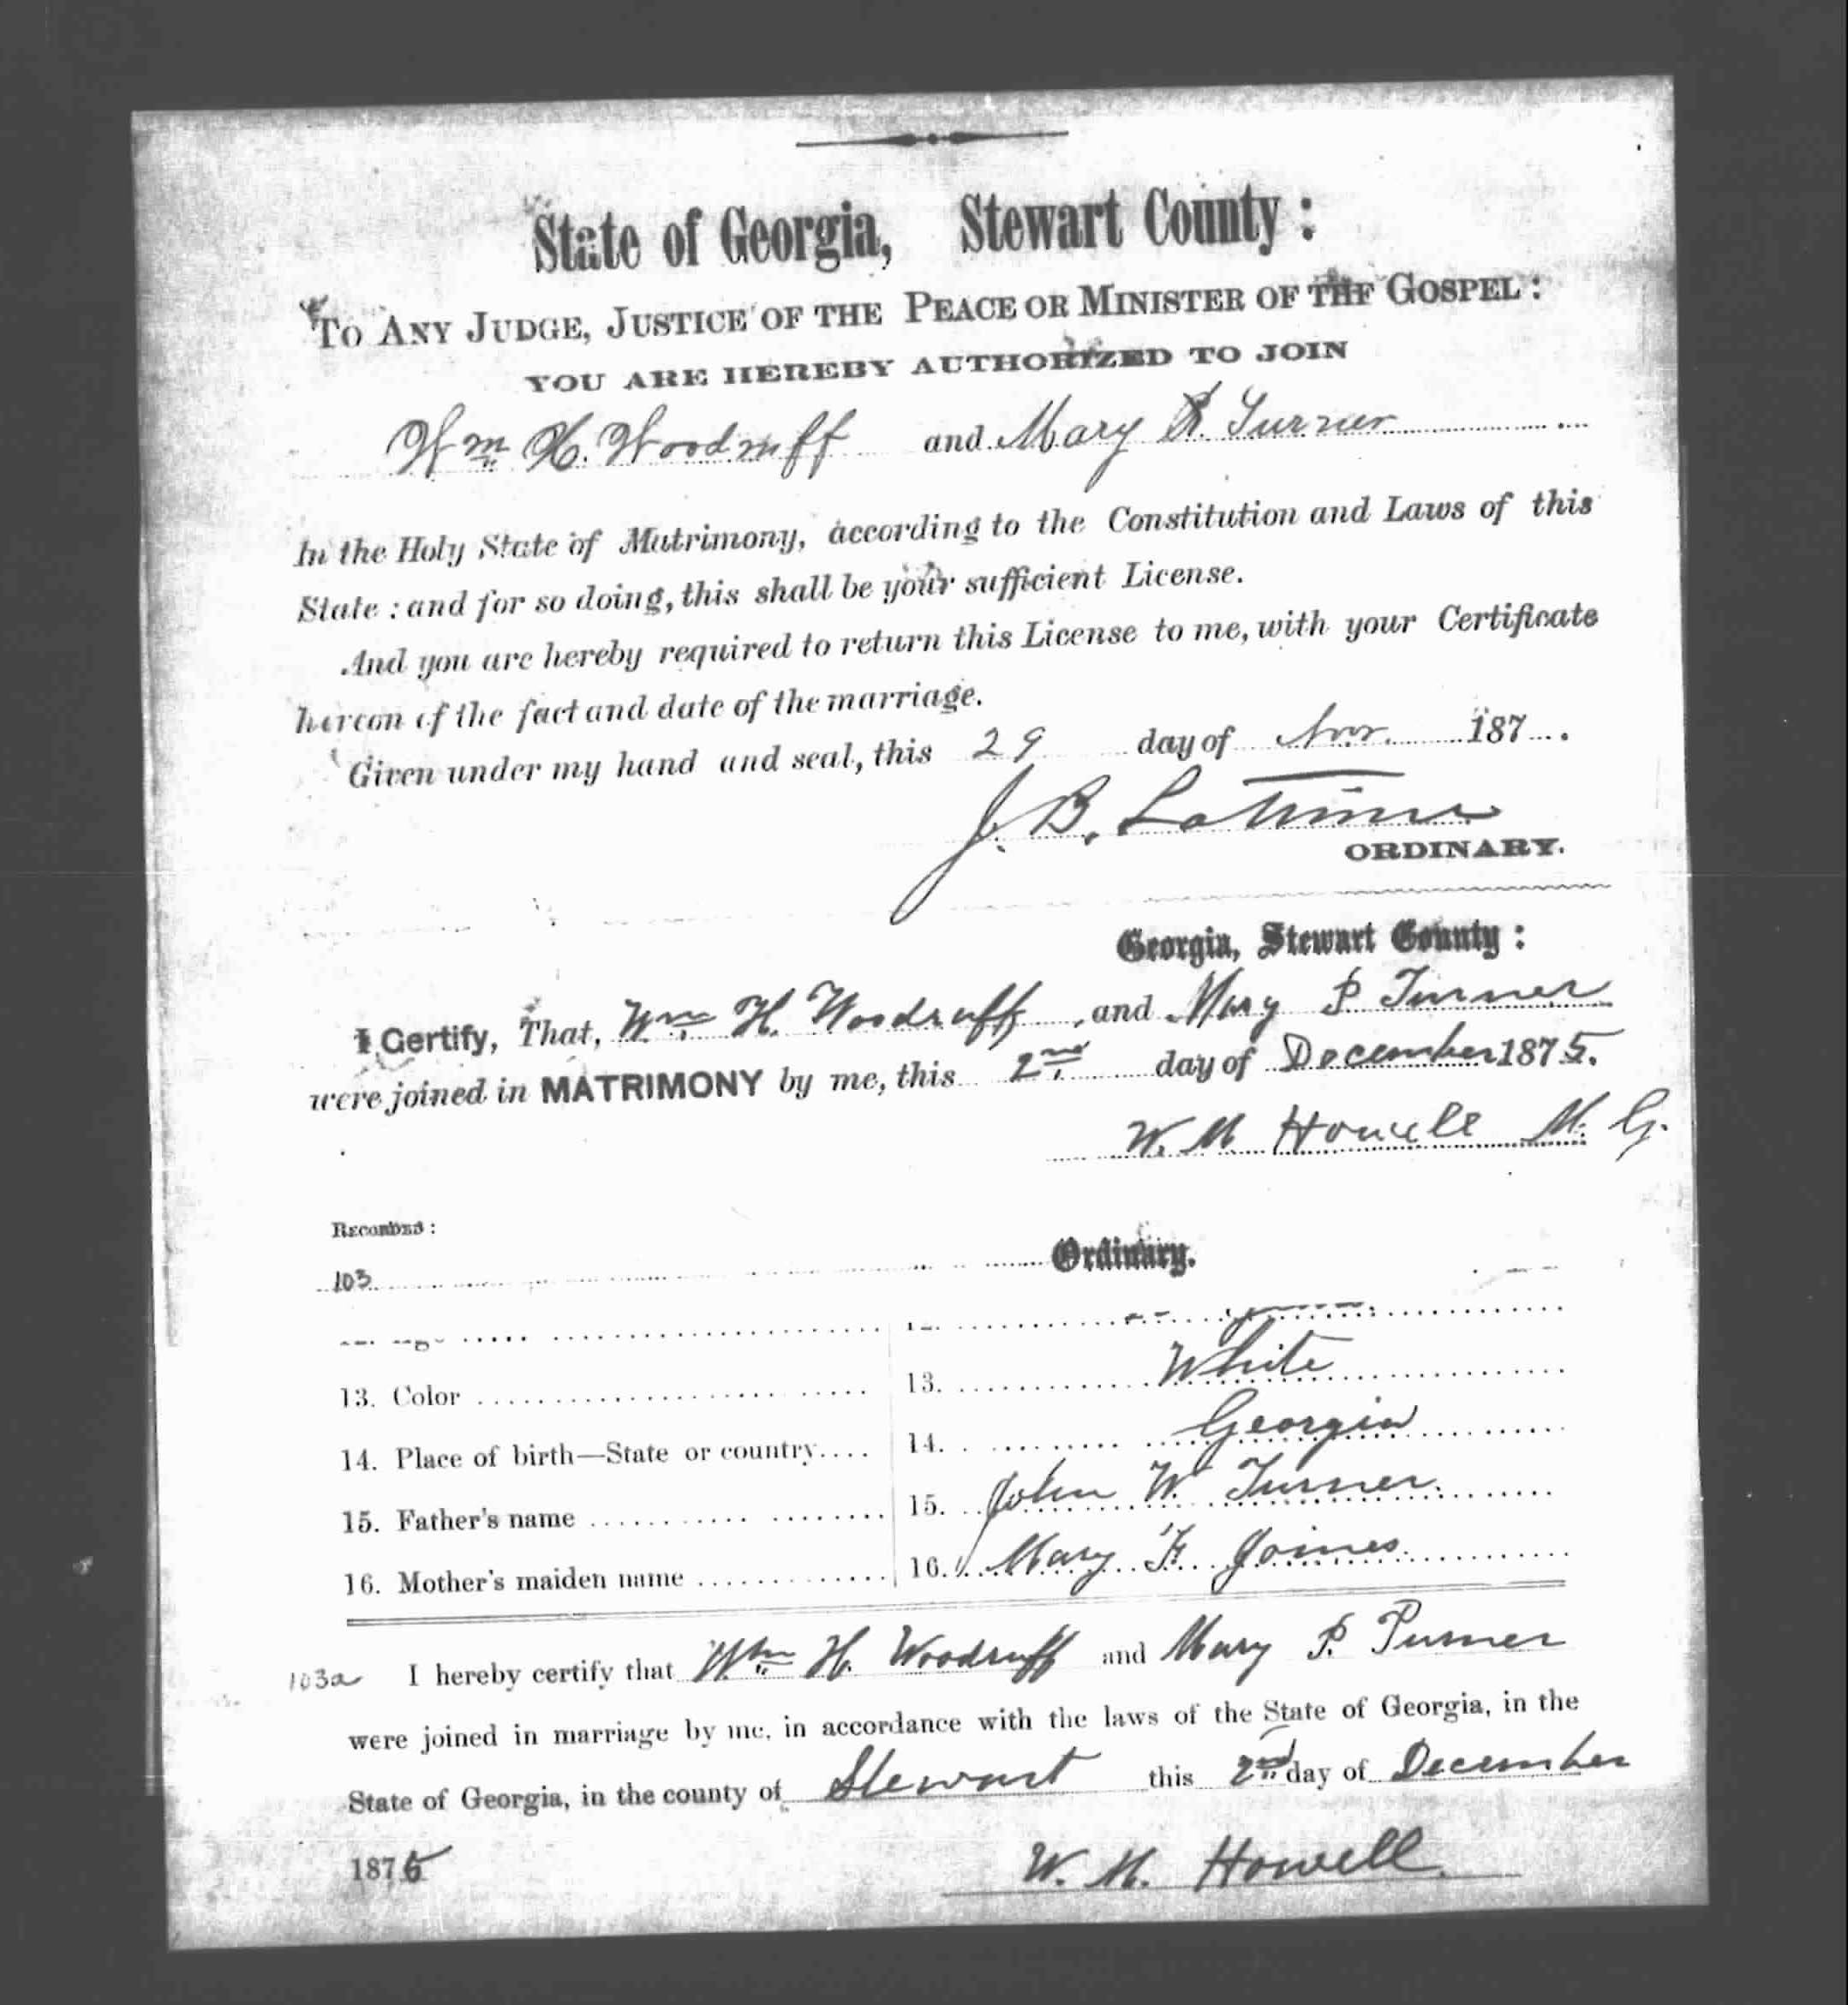 State of Georgia, Stewart County:
To Any Judge, Justice of the Peace or Minister of the Gospel:
YOU ARE HEREBY AUTHORIZED TO JOIN
Wm H. Woodruff and Mary P. Turner
In the Holy State of Matrimony, according to the Constitution and Laws of this
State: and for so doing, this shall be your sufficient License.
And you are hereby required to return this License to me, with your Certificate
hereon of the fact and date of the marriage.
Given under my hand and seal, this 29 day of Nov. 187
J. B. Latimer
ORDINARY.
Georgia, Stewart County:
I Certify, That, Wm H. Woodruff, and Mary P Turner
were joined in MATRIMONY by me, this 2nd day of December 1875.
W. M Howell M. G.
RECORDED:
103 Ordinary.
13. Color 13. White
14. Place of birth—State or country 14. Georgia
15. Father's name 15. John W Turner
16. Mother's maiden name 16. Mary F. Joines
103a I hereby certify that Wm H. Woodruff and Mary P. Turner
were joined in marriage by me, in accordance with the laws of the State of Georgia, in the
State of Georgia, in the county of Stewart this 2nd day of December
1875 W. M. Howell